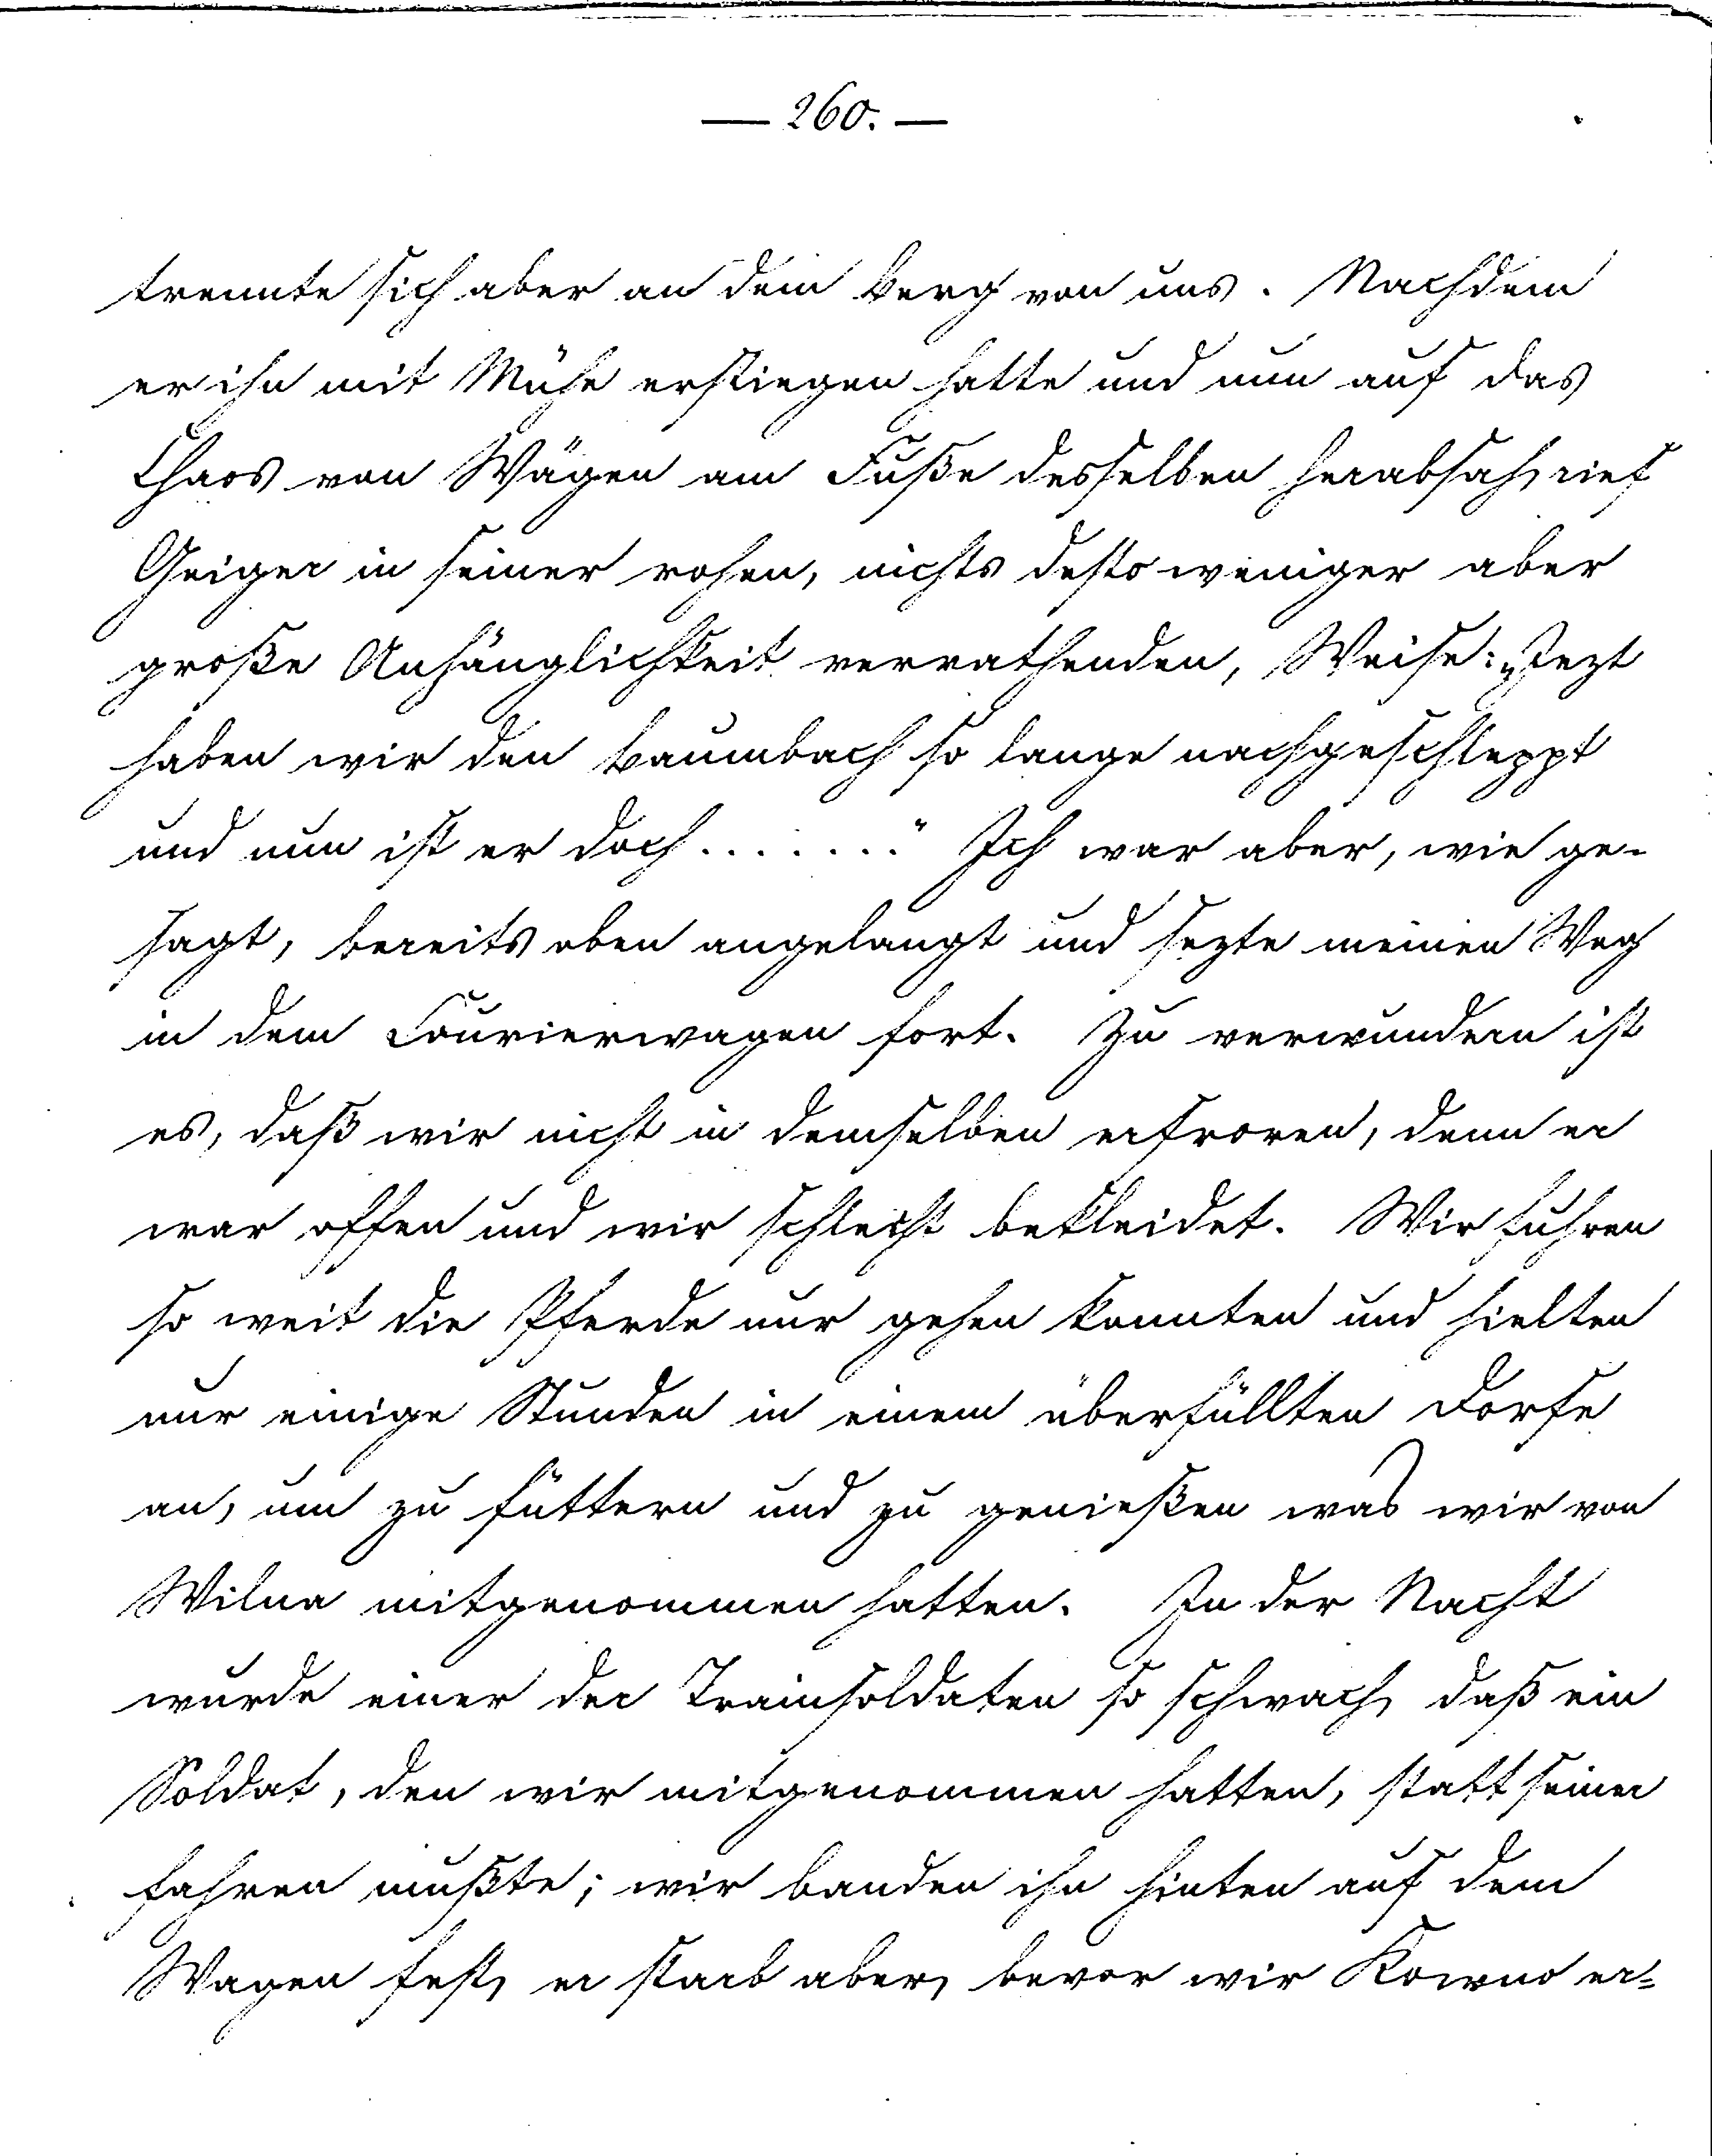 — 260. —
trennte sich aber an dem Berg von uns. Nachdem
er ihn mit Mühe erstiegen hatte und nun auf das
Chaos von Wägen am Fuße desselben herabsah, rief
Geiger in seiner rohen, nichts desto weniger aber
große Anhänglichkeit verrathenden, Weise: „Jezt
haben wir den Baumbach so lange nachgeschleppt
und nun ist er doch . . . . . . ." Ich war aber, wie ge-
sagt, bereits oben angelangt und sezte meinen Weg
in dem Fourierwagen fort. Zu verwundern ist
es, daß wir nicht in demselben erfroren, denn er
war offen und wir schlecht bekleidet. Wir fuhren
so weit die Pferde nur gehen konnten und hielten
nur einige Stunden in einem überfüllten Dorfe
an, um zu füttern und zu genießen was wir von
Wilna mitgenommen hatten. In der Nacht
wurde einer der Trainsoldaten so schwach, daß ein
Soldat, den wir mitgenommen hatten, statt seiner
fahren mußte; wir banden ihn hinten auf dem
Wagen fest, er starb aber, bevor wir Kowno er-